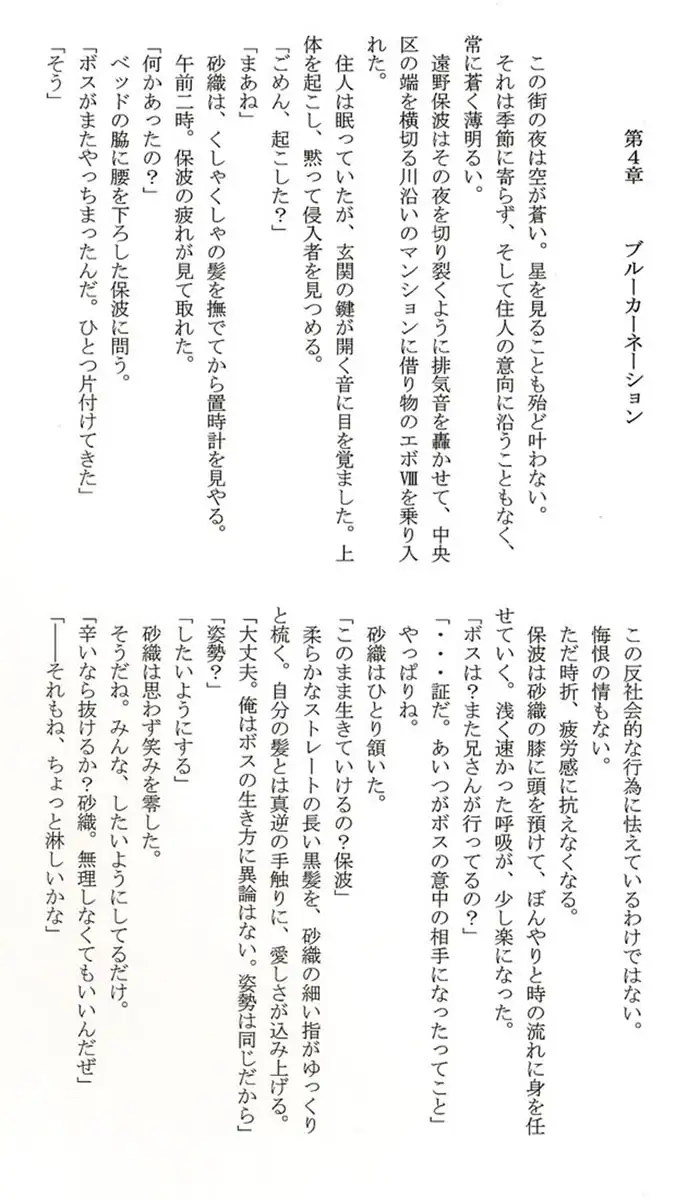 第４章　ブルーカーネーション
この街の夜は空が蒼い。星を見ることも殆ど叶わない。
それは季節に寄らず、そして住人の意向に沿うこともなく、
常に蒼く薄明るい。
遠野保波はその夜を切り裂くように排気音を轟かせて、中央
区の端を横切る川沿いのマンションに借り物のエボⅧを乗り入
れた。
住人は眠っていたが、玄関の鍵が開く音に目を覚ました。上
体を起こし、黙って侵入者を見つめる。
「ごめん、起こした？」
「まあね」
砂織は、くしゃくしゃの髪を撫でてから置時計を見やる。
午前二時。保波の疲れが見て取れた。
「何かあったの？」
ベッドの脇に腰を下ろした保波に問う。
「ボスがまたやっちまったんだ。ひとつ片付けてきた」
「そう」
この反社会的な行為に怯えているわけではない。
悔恨の情もない。
ただ時折、疲労感に抗えなくなる。
保波は砂織の膝に頭を預けて、ぼんやりと時の流れに身を任
せていく。浅く速かった呼吸が、少し楽になった。
「ボスは？また兄さんが行ってるの？」
「・・・証だ。あいつがボスの意中の相手になったってこと」
やっぱりね。
砂織はひとり頷いた。
「このまま生きていけるの？保波」
柔らかなストレートの長い黒髪を、砂織の細い指がゆっくり
と梳く。自分の髪とは真逆の手触りに、愛しさが込み上げる。
「大丈夫。俺はボスの生き方に異論はない。姿勢は同じだから」
「姿勢？」
「したいようにする」
砂織は思わず笑みを零した。
そうだね。みんな、したいようにしてるだけ。
「辛いなら抜けるか？砂織。無理しなくてもいいんだぜ」
「――それもね、ちょっと淋しいかな」